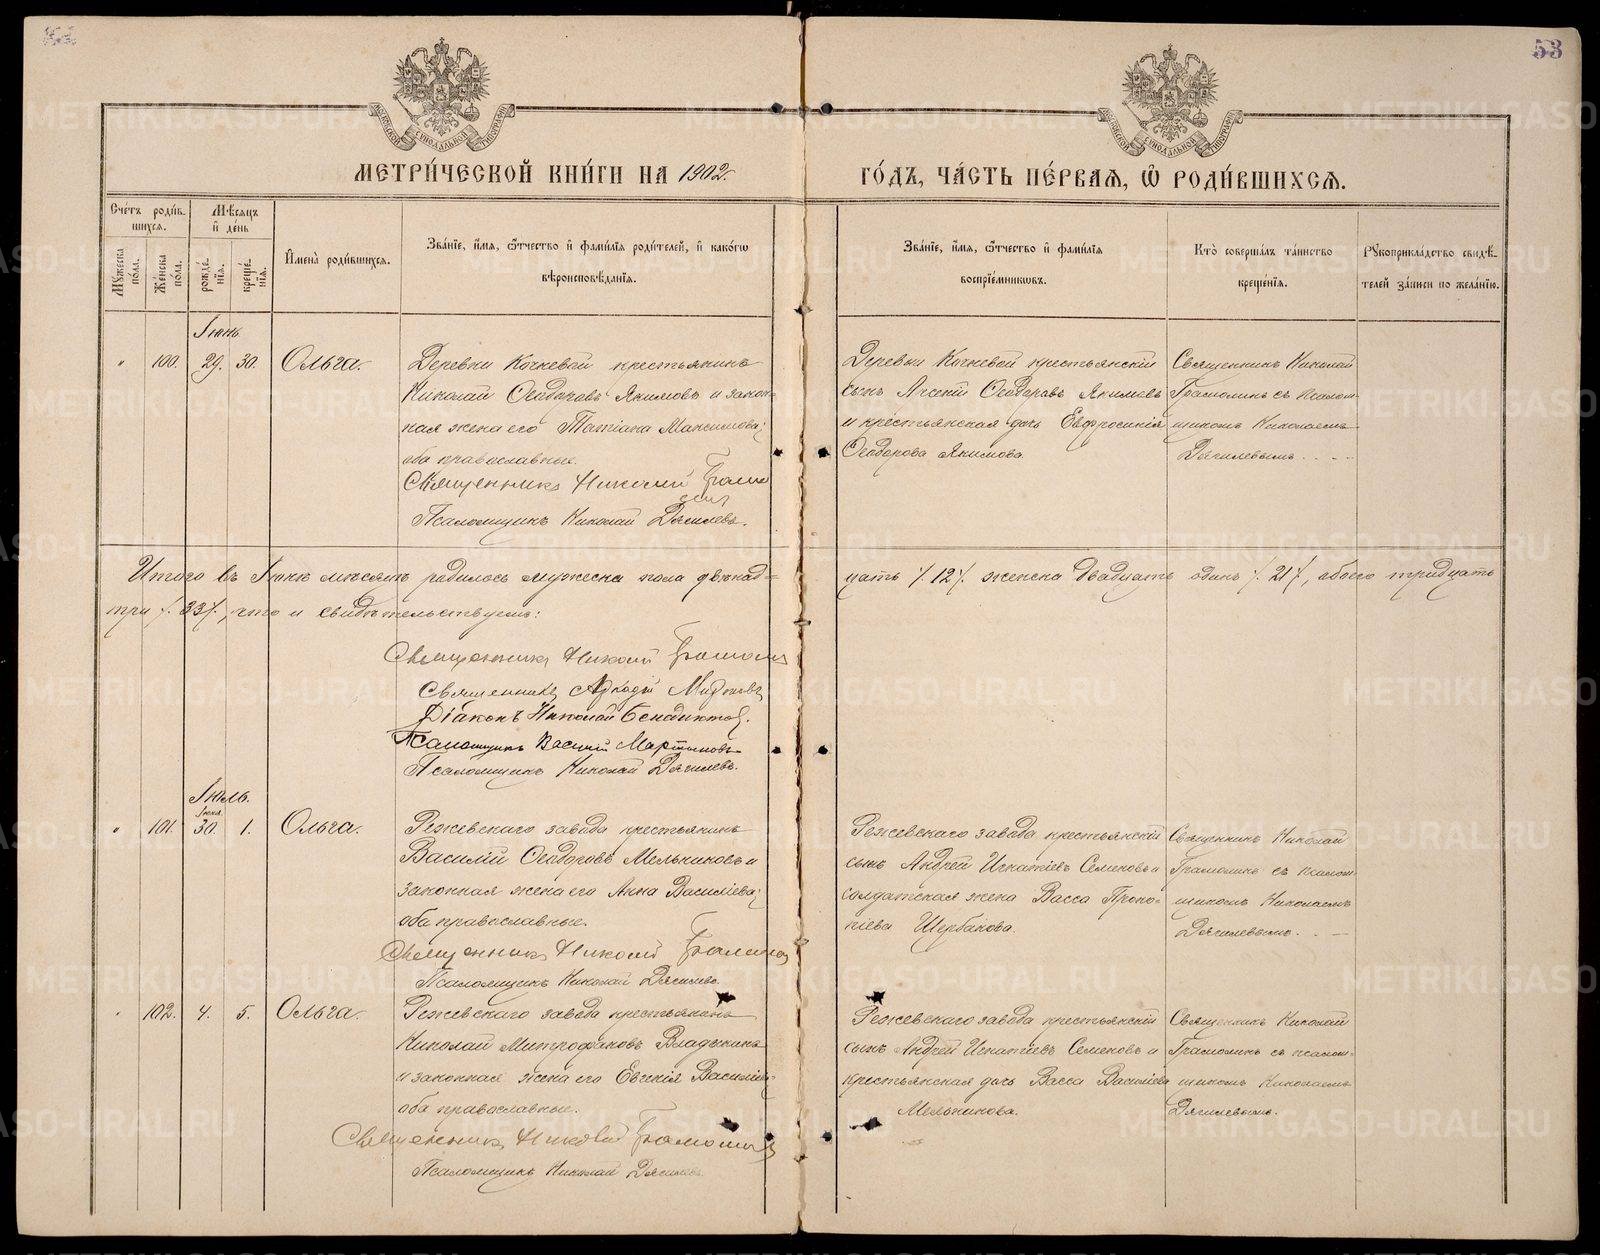 53
МОСКОВСКОЙ СѴНОДАЛЬНОЙ ТИПОГРАФІИ
МОСКОВСКОЙ СѴНОДАЛЬНОЙ ТИПОГРАФІИ
МЕТРИ́ЧЕСКОЙ КНИ́ГИ НА 1902.
ГО́ДЪ, ЧА́СТЬ ПЕ́РВАЯ, Ѡ РОДИ́ВШИХСЯ.
Сче́тъ роди́в-
шихся.
Мꙋ́жеска по́ла.
Же́нска по́ла.
Мѣ́сяцъ
и҆ де́нь
рожде́-
нїя.
креще́-
нїя.
И҆мена̀ роди́вшихся.
Зва́нїе, и҆́мя, ѻ҆́тчество и҆ фами́лїя роди́телей, и҆ како́гѡ
вѣроисповѣ́данїя.
Зва́нїе, и҆́мя, ѻ҆́тчество и҆ фами́лїя
воспрїе́мникѡвъ.
Кто̀ соверша́лъ та́инство
креще́нїя.
Рꙋкоприкла́дство свидѣ́-
телей за́писи по жела́нїю.
Іюнь.
" 100. 29. 30. Ольга.
Деревни Кочневой крестьянинъ
Николай Ѳеодоровъ Якимовъ и закон-
ная жена его Татіана Максимова;
оба православные.
Священникъ Николай Грамо
Псаломщикъ Николай Дягилевъ.
Деревни Кочневой крестьянскій
сынъ Арсеній Ѳеодоровъ Якимовъ
и крестьянская дочь Евфросинія
Ѳеодорова Якимова.
Священникъ Николай
Грамолинъ съ псалом-
щикомъ Николаемъ
Дягилевымъ.
Итого въ Іюнѣ мѣсяцѣ родилось мужеска пола двѣнад-
цать /.12./ женска двадцать одинъ /.21./, обоего тридцать
три /.33/., что и свидѣтельствуемъ:
Священникъ Николай Грамолин
Священникъ Аркадій
Діаконъ Николай Бенедиктов.
Псаломщикъ Василій Мартыновъ
Псаломщикъ Николай Дягилевъ.
Іюль.
Іюня.
" 101. 30. 1. Ольга.
Режевскаго завода крестьянинъ
Василій Ѳеодоровъ Мельниковъ и
законная жена его Анна Василіева;
оба православные.
Священникъ Николай Грамолин
Псаломщикъ Николай Дягилевъ.
Режевскаго завода крестьянскій
сынъ Андрей Игнатіевъ Семеновъ и
солдатская жена Васса Проко-
піева Щербакова.
Священникъ Николай
Грамолинъ съ псалом-
щикомъ Николаемъ
Дягилевымъ.
" 102. 4. 5. Ольга.
Режевскаго завода крестьянинъ
Николай Митрофановъ Владыкинъ
и законная жена его Евгенія Василіева
оба православные.
Священникъ Николай Грамолин
Псаломщикъ Николай Дягилевъ.
Режевскаго завода крестьянскій
сынъ Андрей Игнатіевъ Семеновъ и
крестьянская дочь Васса Василіева
Мельникова.
Священникъ Николай
Грамолинъ съ псалом-
щикомъ Николаемъ
Дягилевымъ.
METRIKI.GASO-URAL.RU